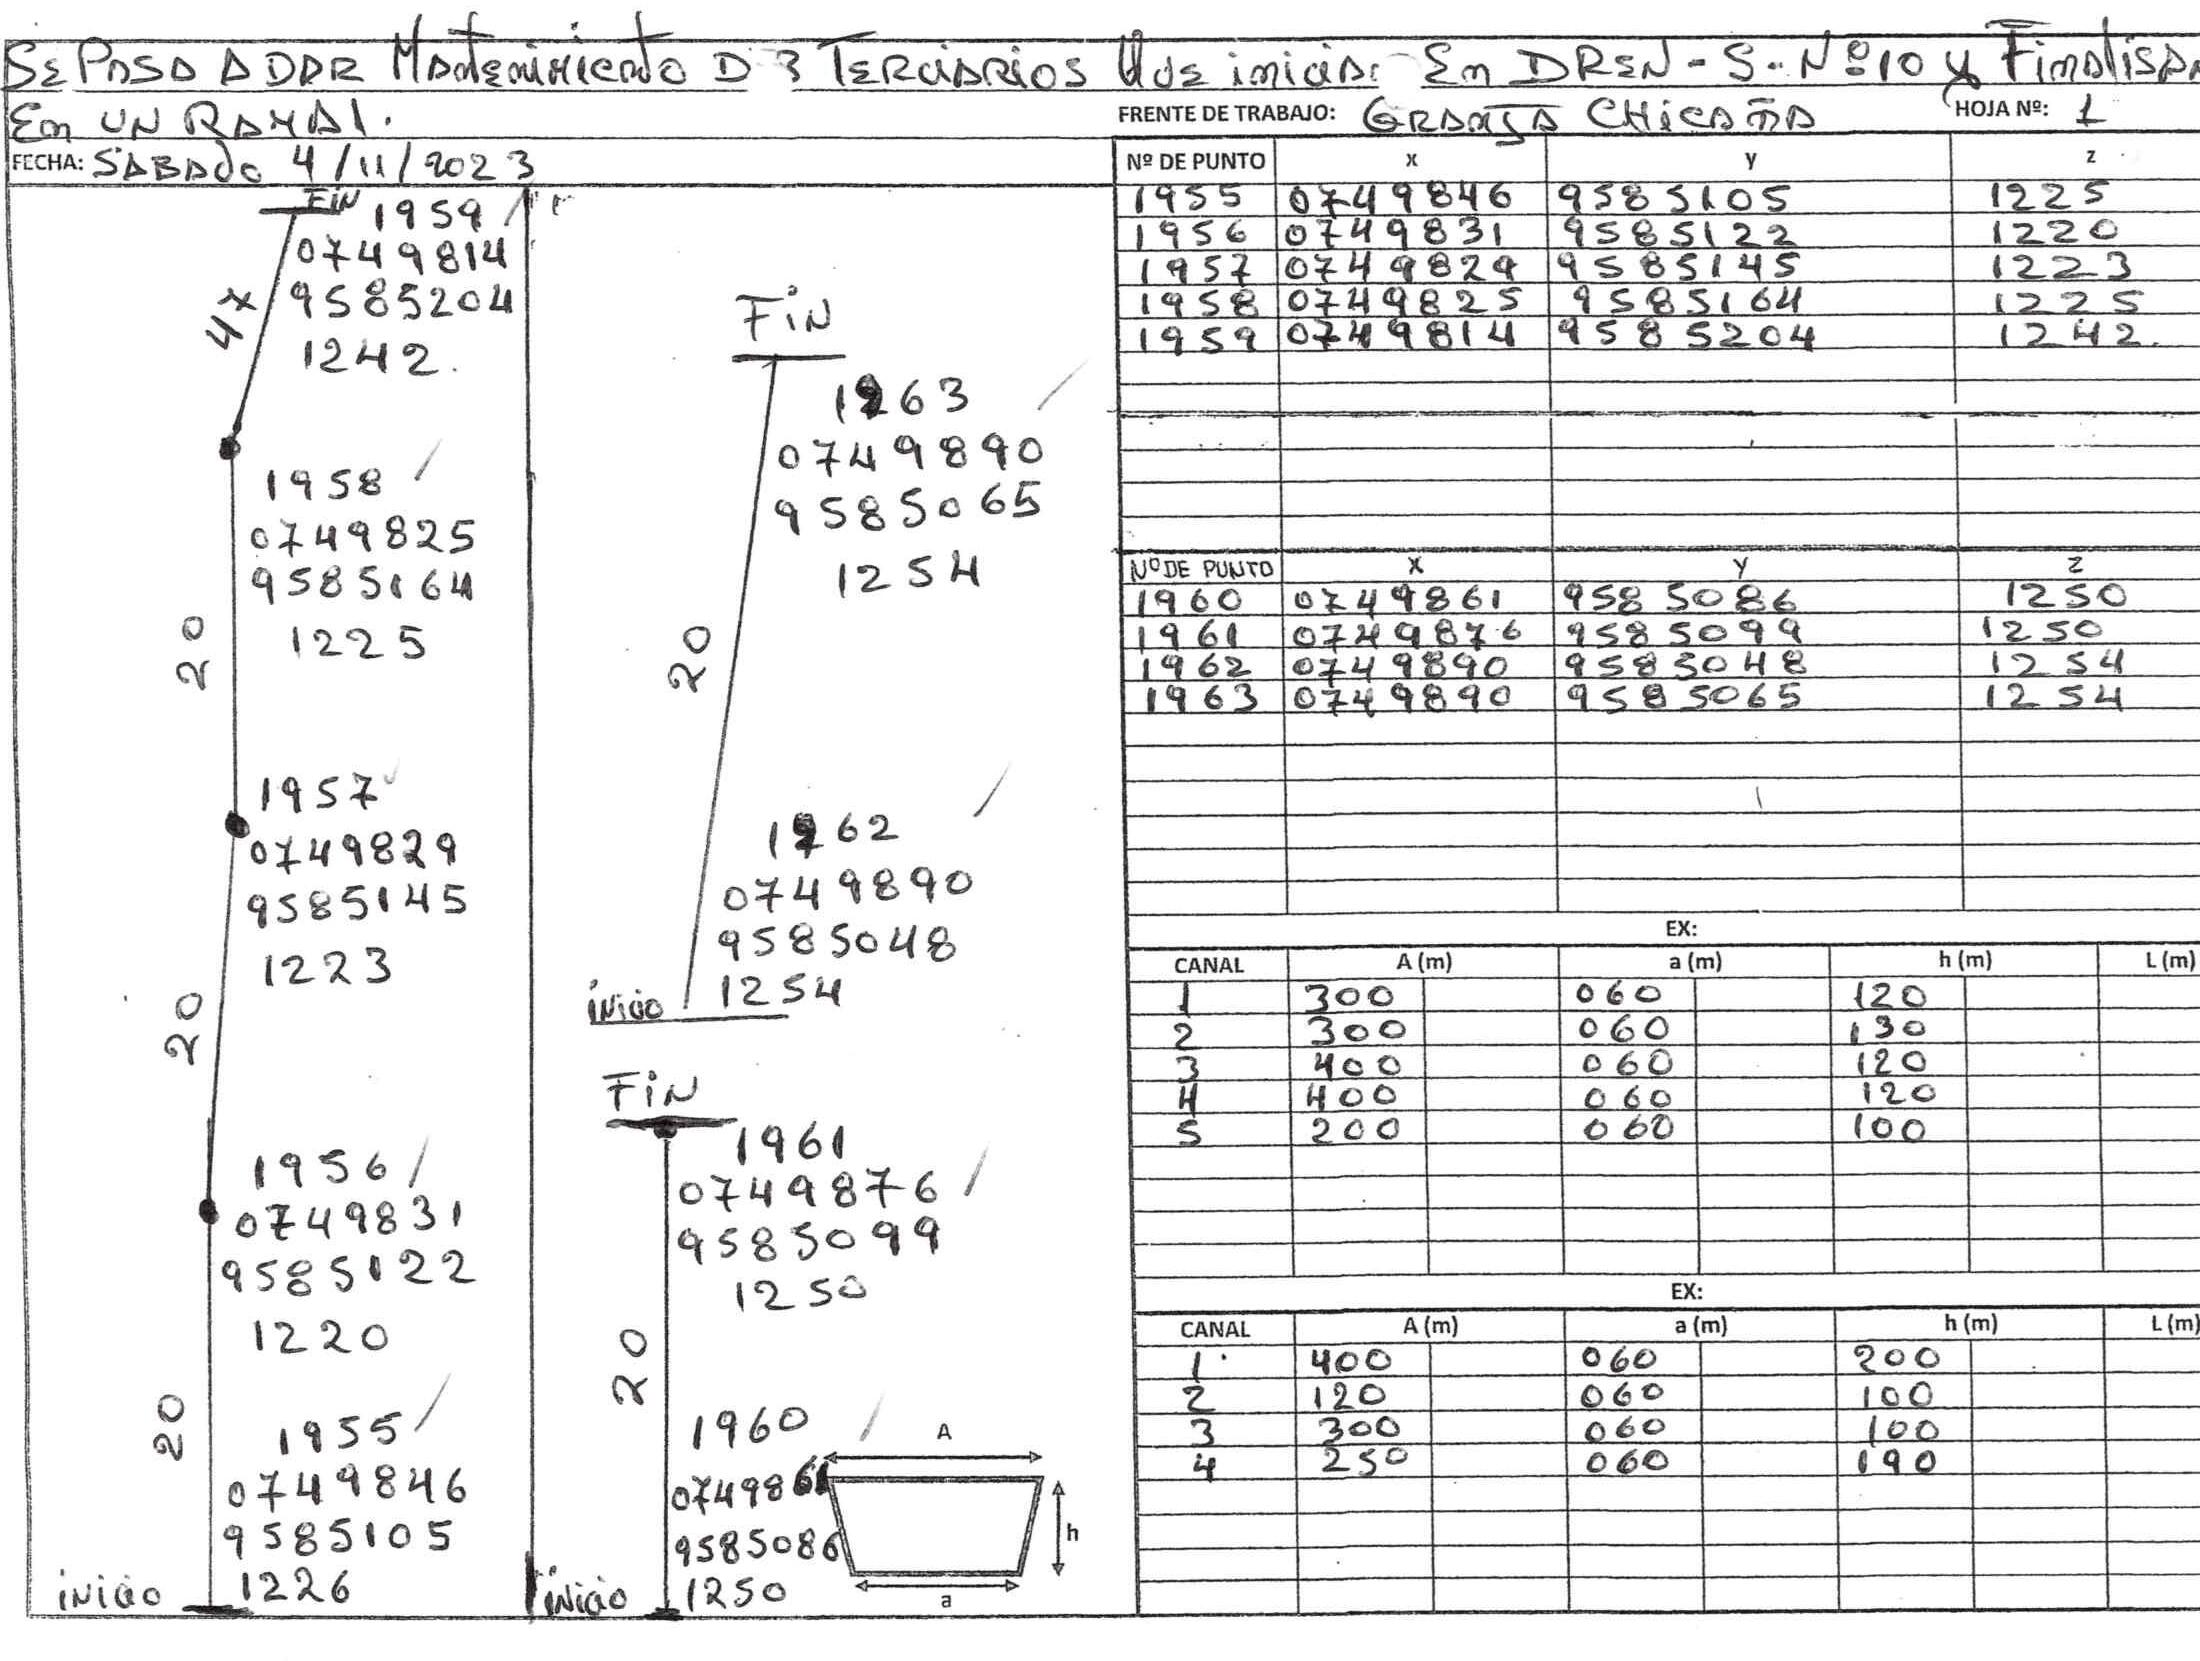 SE PASO A DAR Mantenimiento D 3 TERCIARIOS Que inicia En DREN-S-Nº10 y Finalisa
En UN RAMAL.
FRENTE DE TRABAJO: GRANJA CHICAÑA HOJA Nº: 1
FECHA: SABADO 4/11/2023
Fin 1959
0749814
9585204
1242.
1958
0749825
9585164
1225
20
1957
0749829
9585145
1223
20
1956
0749831
9585122
1220
20
1955
0749846
9585105
1226
inicio
Fin
1963
0749890
9585065
1254
20
1962
0749890
9585048
1254
inicio
Fin
1961
0749876
9585099
1250
20
1960
0749861
9585086
1250
inicio
A
h
a
Nº DE PUNTO x y z
1955 0749846 9585105 1225
1956 0749831 9585122 1220
1957 0749829 9585145 1223
1958 0749825 9585164 1225
1959 0749814 9585204 1242.
Nº DE PUNTO x y z
1960 0749861 9585086 1250
1961 0749876 9585099 1250
1962 0749890 9585048 1254
1963 0749890 9585065 1254
EX:
CANAL A (m) a (m) h (m) L (m)
1 300 060 120
2 300 060 130
3 400 060 120
4 400 060 120
5 200 060 100
EX:
CANAL A (m) a (m) h (m) L (m)
1 400 060 200
2 120 060 100
3 300 060 100
4 250 060 190